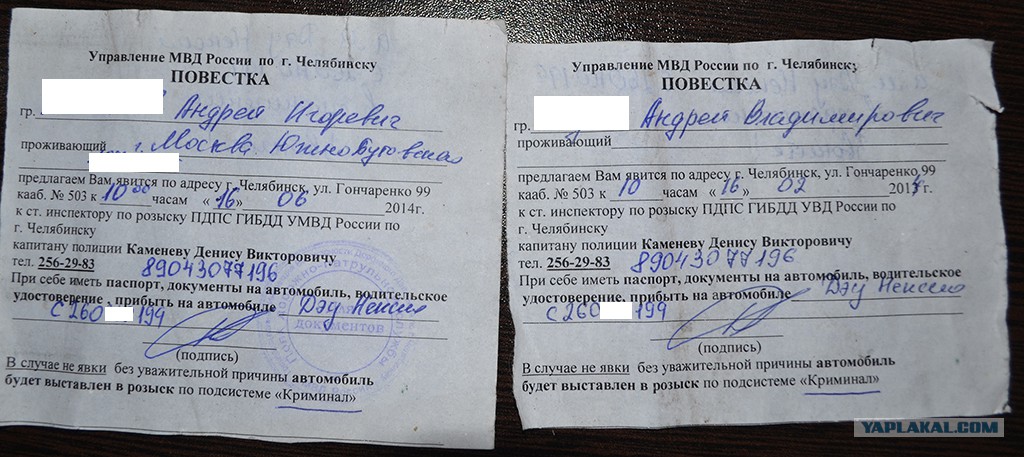 Управление МВД России по г. Челябинску
ПОВЕСТКА
гр. Андрей Игоревич
проживающий г. Москва Южнобутовская
предлагаем Вам явится по адресу г. Челябинск, ул. Гончаренко 99
кааб. № 503 к 10 00 часам « 16 » 06 2014г.
к ст. инспектору по розыску ПДПС ГИБДД УМВД России по
г. Челябинску
капитану полиции Каменеву Денису Викторовичу
тел. 256-29-83 89043077196
При себе иметь паспорт, документы на автомобиль, водительское
удостоверение , прибыть на автомобиле Дэу Нексия
С260 199
документов
(подпись)
В случае не явки без уважительной причины автомобиль
будет выставлен в розыск по подсистеме «Криминал»
Управление МВД России по г. Челябинску
ПОВЕСТКА
гр. Андрей Владимирович
проживающий
предлагаем Вам явится по адресу г. Челябинск, ул. Гончаренко 99
кааб. № 503 к 10 часам « 16 » 02 201 г.
к ст. инспектору по розыску ПДПС ГИБДД УВД России по
г. Челябинску
капитану полиции Каменеву Денису Викторовичу
тел. 256-29-83 89043077196
При себе иметь паспорт, документы на автомобиль, водительское
удостоверение, прибыть на автомобиле Дэу Нексия
С260 199
(подпись)
В случае не явки без уважительной причины автомобиль
будет выставлен в розыск по подсистеме «Криминал»
YAPLAKAL.COM